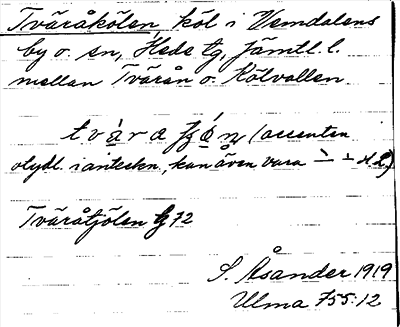 Tväråkölen, köl i Vemdalens
by o. sn, Hede tg, Jämtl. l.
mellan Tvärån o. Kölvallen.
(accenten
otydl. i anteckn., kan även vara
Tväråtjölen tg 72
S. Åsander 1919
Ulma 755:12